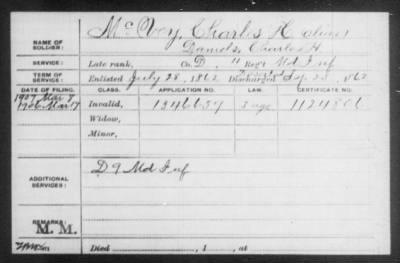 McVey, Charles H alias
Daniels, Charles H
NAME OF SOLDIER:
SERVICE: Late rank, Co. D, 11 Reg't Md Inf
TERM OF SERVICE: Enlisted July 28, 1862 Discharged Sep. 28, 1862
DATE OF FILING. CLASS. APPLICATION NO. LAW. CERTIFICATE NO.
1907 Mar 7 Invalid, 1124806
Widow,
Minor,
ADDITIONAL SERVICES: D 9 Md Inf
REMARKS:
M. M.
Died , 1 , at